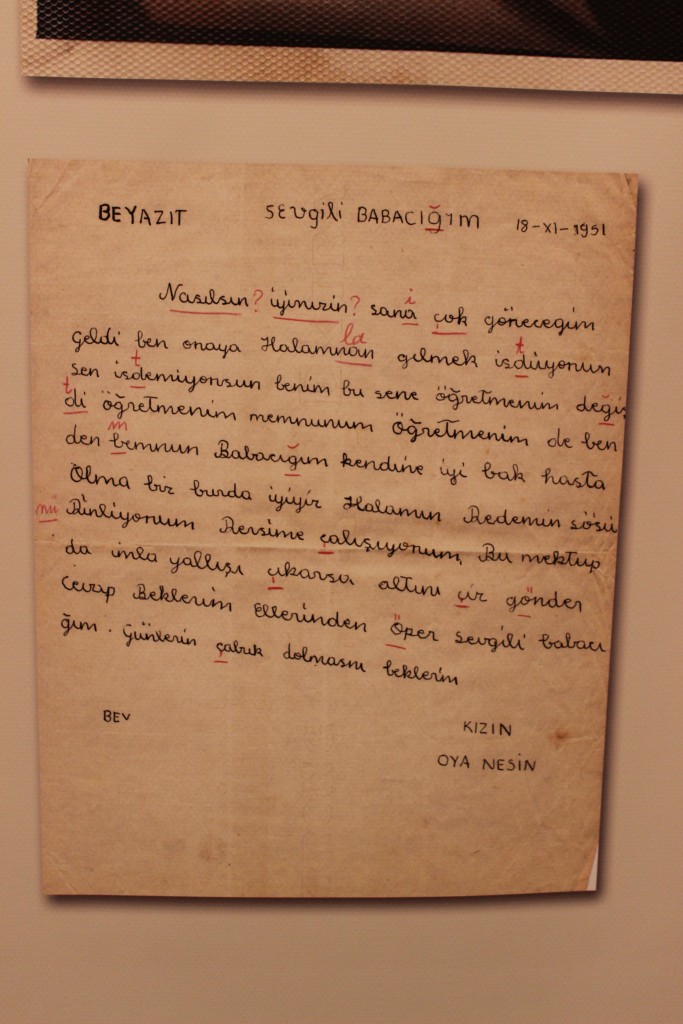 BEYAZIT SEVgili BABACIĞIM 18-XI-1951
Nasılsın? iyimizin? sana i çok göreceğim
geldi ben oraya Halamnan la gilmek isdiiyorum t
sen isdemiyorsun t benim bu sene öğretmenim değiş
di t öğretmenim memnunum Öğretmenim de ben
den bemnun m Babacığım kendine iyi bak hasta
Olma biz burda iyiyiz Halamın Dedemin sösü
nü Dinliyorum Dersime çalışıyorum. Bu mektup
da imla yallışı çıkarsa altını çiz gönder
Cevap Beklerim Ellerinden Öper sevgili babacı
ğım. Günlerin çabuk dolmasını beklerim
BEV KIZIN
OYA NESİN